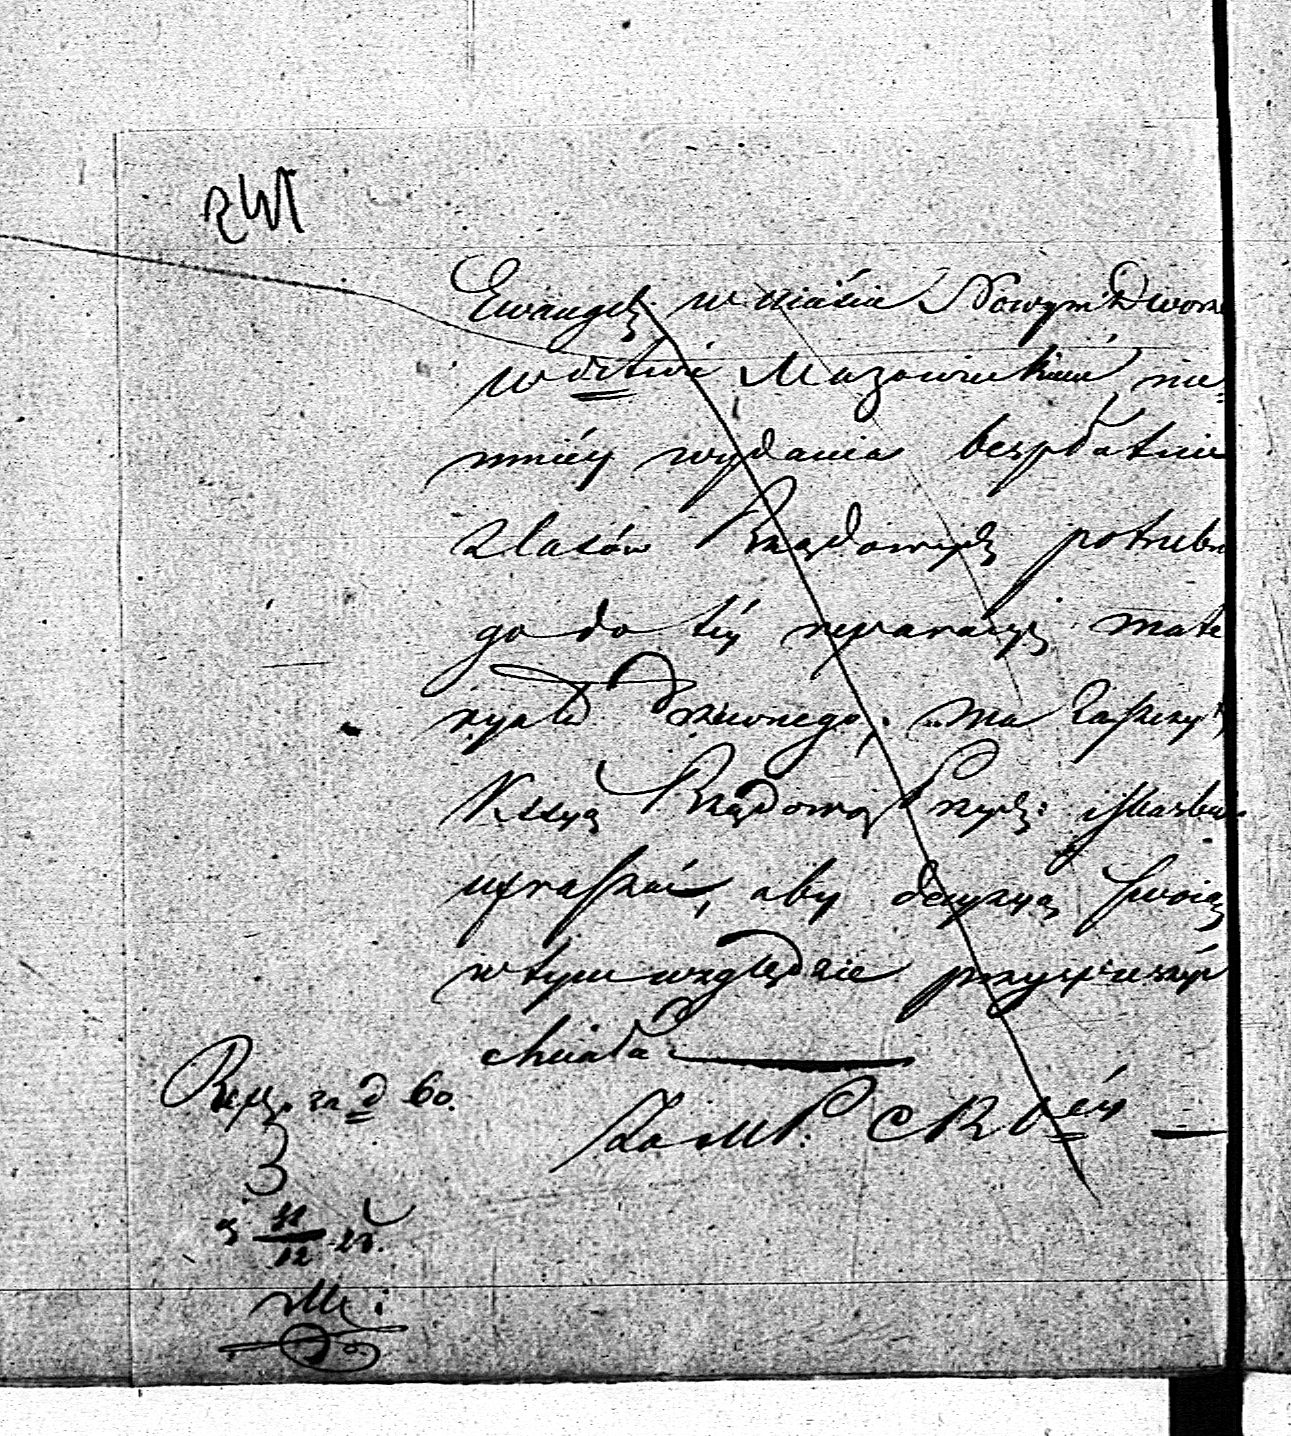 Ewangel: w mieście Nowym Dworze
w Wdztwie Mazowieckim nie
mniéy wydania bezpłatnie
z lasów Rządowych potrzebne
go do téy reparacyi mate
ryału drzewnego; ma zaszczyt
Kssyą Rządową Przych: i Skarbu
upraszać, aby decyzyą swoią
w tym względzie przyspieszyć
chciała.
za d 60.
11
12